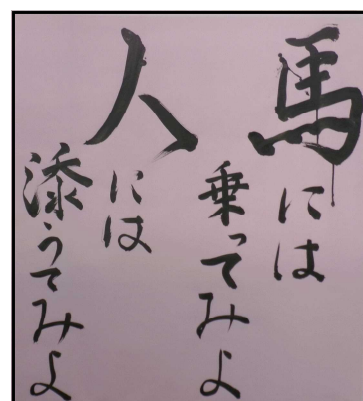 馬には
乗ってみよ
人には
添うてみよ